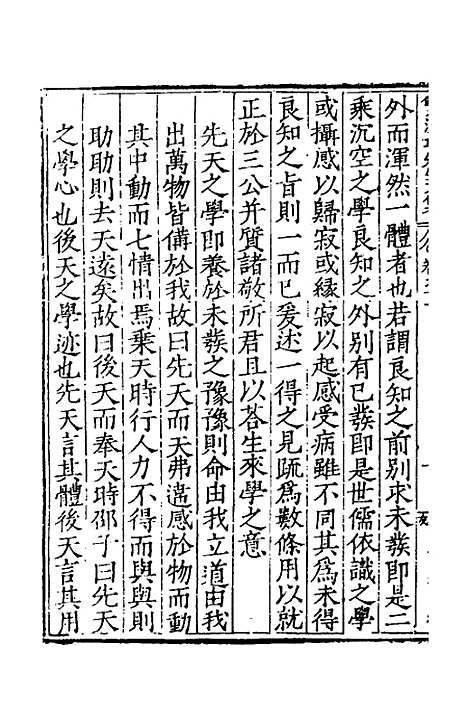 外而渾然一體者也若謂良知之前別求未發即是二
乘沉空之學良知之外別有已發即是世儒依識之學
或攝感以歸寂或緣寂以起感受病雖不同其爲未得
良知之旨則一而已爰述一得之見疏爲數條用以就
正於三公并質諸敬所君且以荅生來學之意
先天之學即養於未發之豫豫則命由我立道由我
出萬物皆備於我故曰先天而天弗違感於物而動
其中動而七情出焉乘天時行人力不得而與與則
助助則去天遠矣故曰後天而奉天時邵子曰先天
之學心也後天之學迹也先天言其體後天言其用